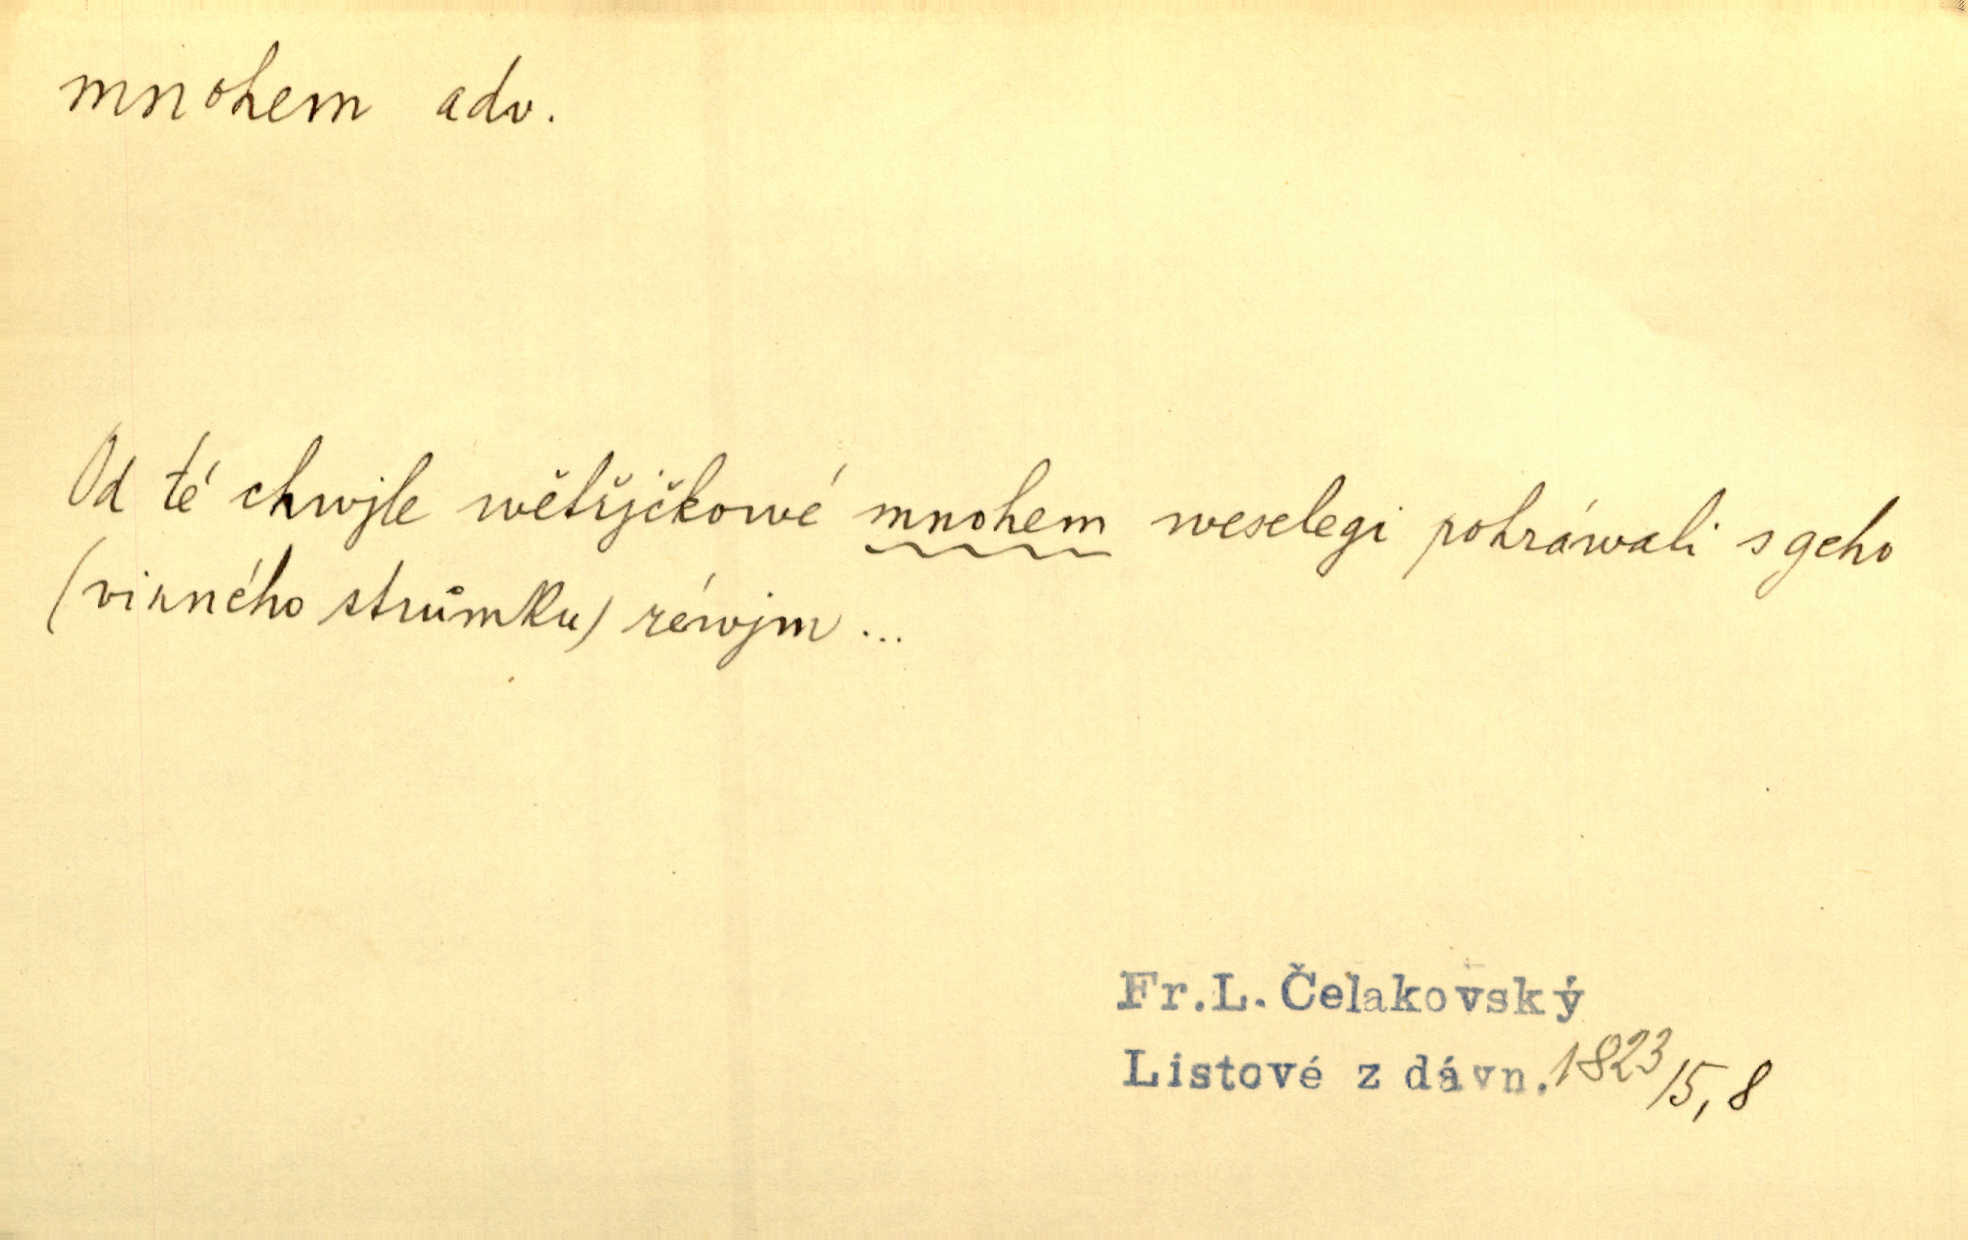 mnohem adv.
Od té chwjle wětřjčkowé mnohem weselegi pohráwali s geho
(vinného strůmku) réwjm ...
Fr.L. Čelakovský
Listové z dávn. 1823/15, 8